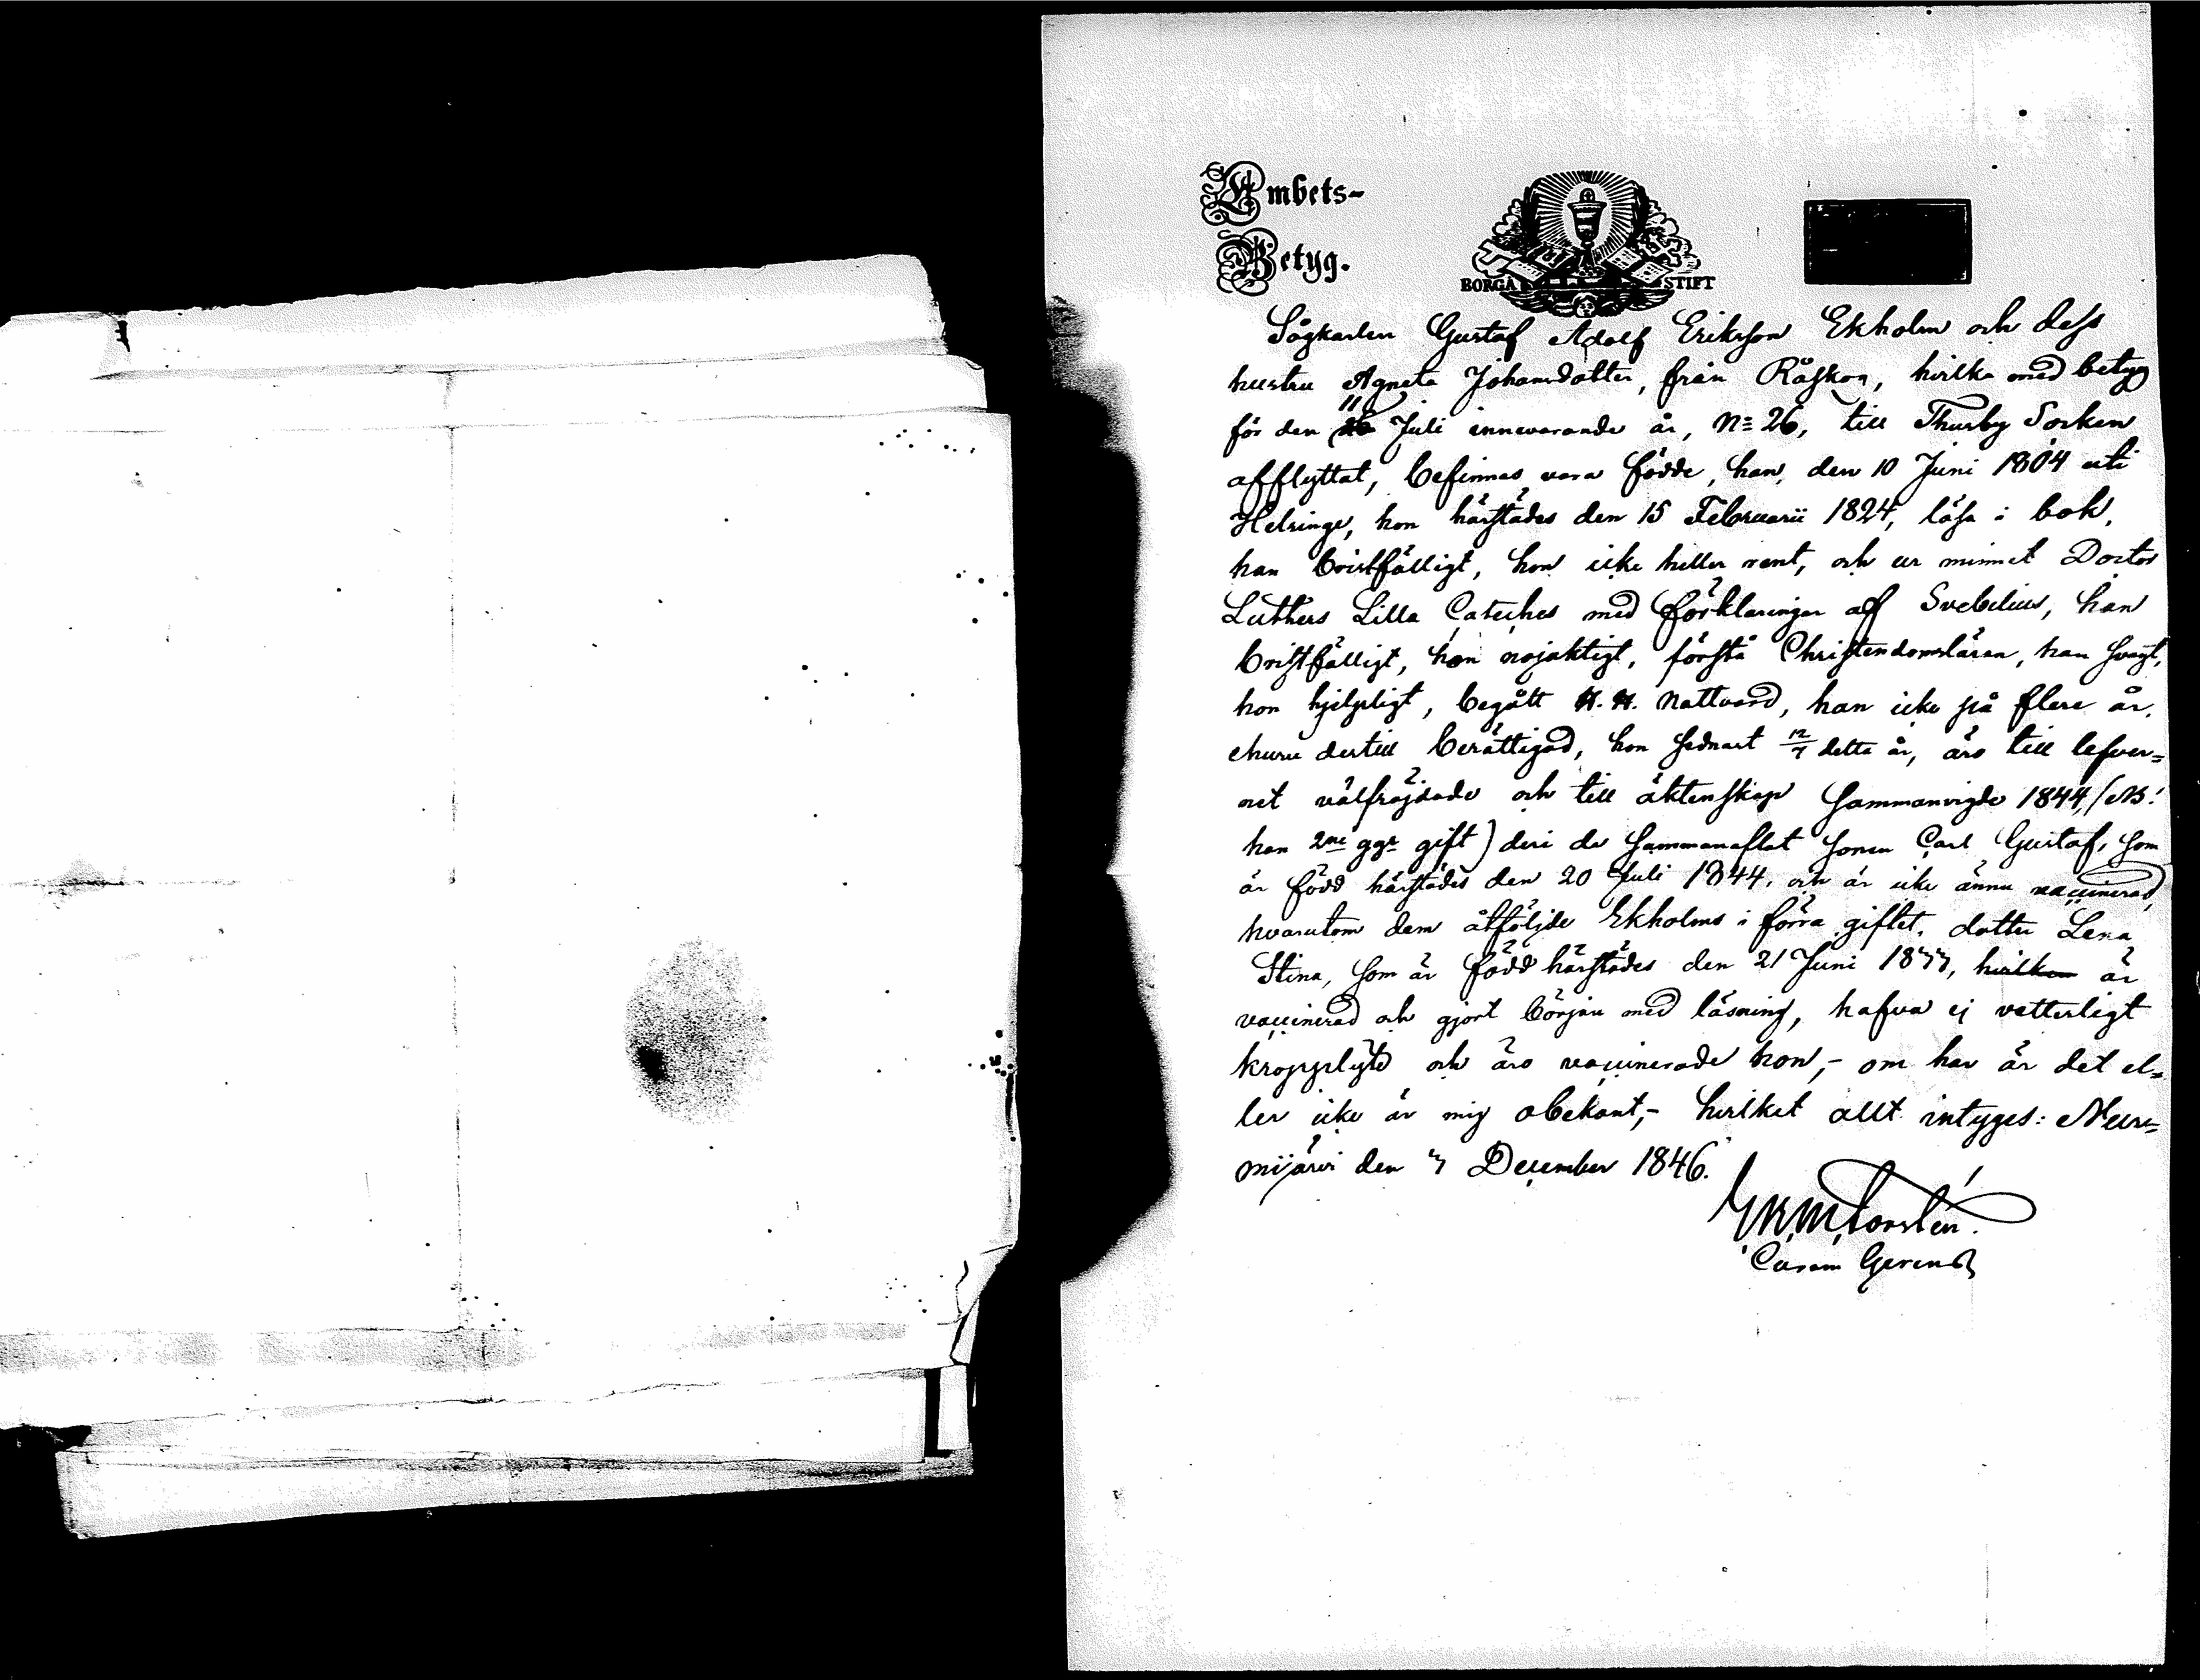 Embets-
Betyg.
BORGA STIFT
Sågkarlen Gustaf Adolf Eriksson Ekholm och dess
hustru Agneta Johansdotter, från Råskog, hvilka med betyg
för den 11 Juli innevarande år, No 26, till Thusby Socken
afflyttat, befinnas vara födde, han, den 10 Juni 1804 uti
Helsinge, hon härstädes den 15 Februarii 1824, läsa i bok,
han bristfälligt, hon icke heller rent, och ur minnet Doctor
Luthers Lilla Cateches med förklaringar af Svebilius, han
bristfälligt, hon nöjaktigt, förstå Christendomsläran, han svagt,
hon hjelpligt, begått H. H. Nattvard, han icke på flere år,
ehuru dertill berättigad, hon sednast 12/7 detta år, äro till lefver-
net välfrejdade och till äktenskap sammanvigde 1844, (NB!
han 2ne ggr gift) deri de sammanaflat sonen Carl Gustaf, som
är född härstädes den 20 Juli 1844, och är icke ännu vaccinerad,
hvarutom dem åtföljde Ekholms i förra giftet, dotter Lena
Stina, som är född härstädes den 21 Juni 1837, hvilken är
vaccinerad och gjort början med läsning, hafva ej vetterligt
kroppslyte och äro vaccinerade hon,- om han är det el-
ler icke är mig obekant,- hvilket allt intygas: Nurmijärvi
mijärvi den 7 December 1846.
Curam Gerens